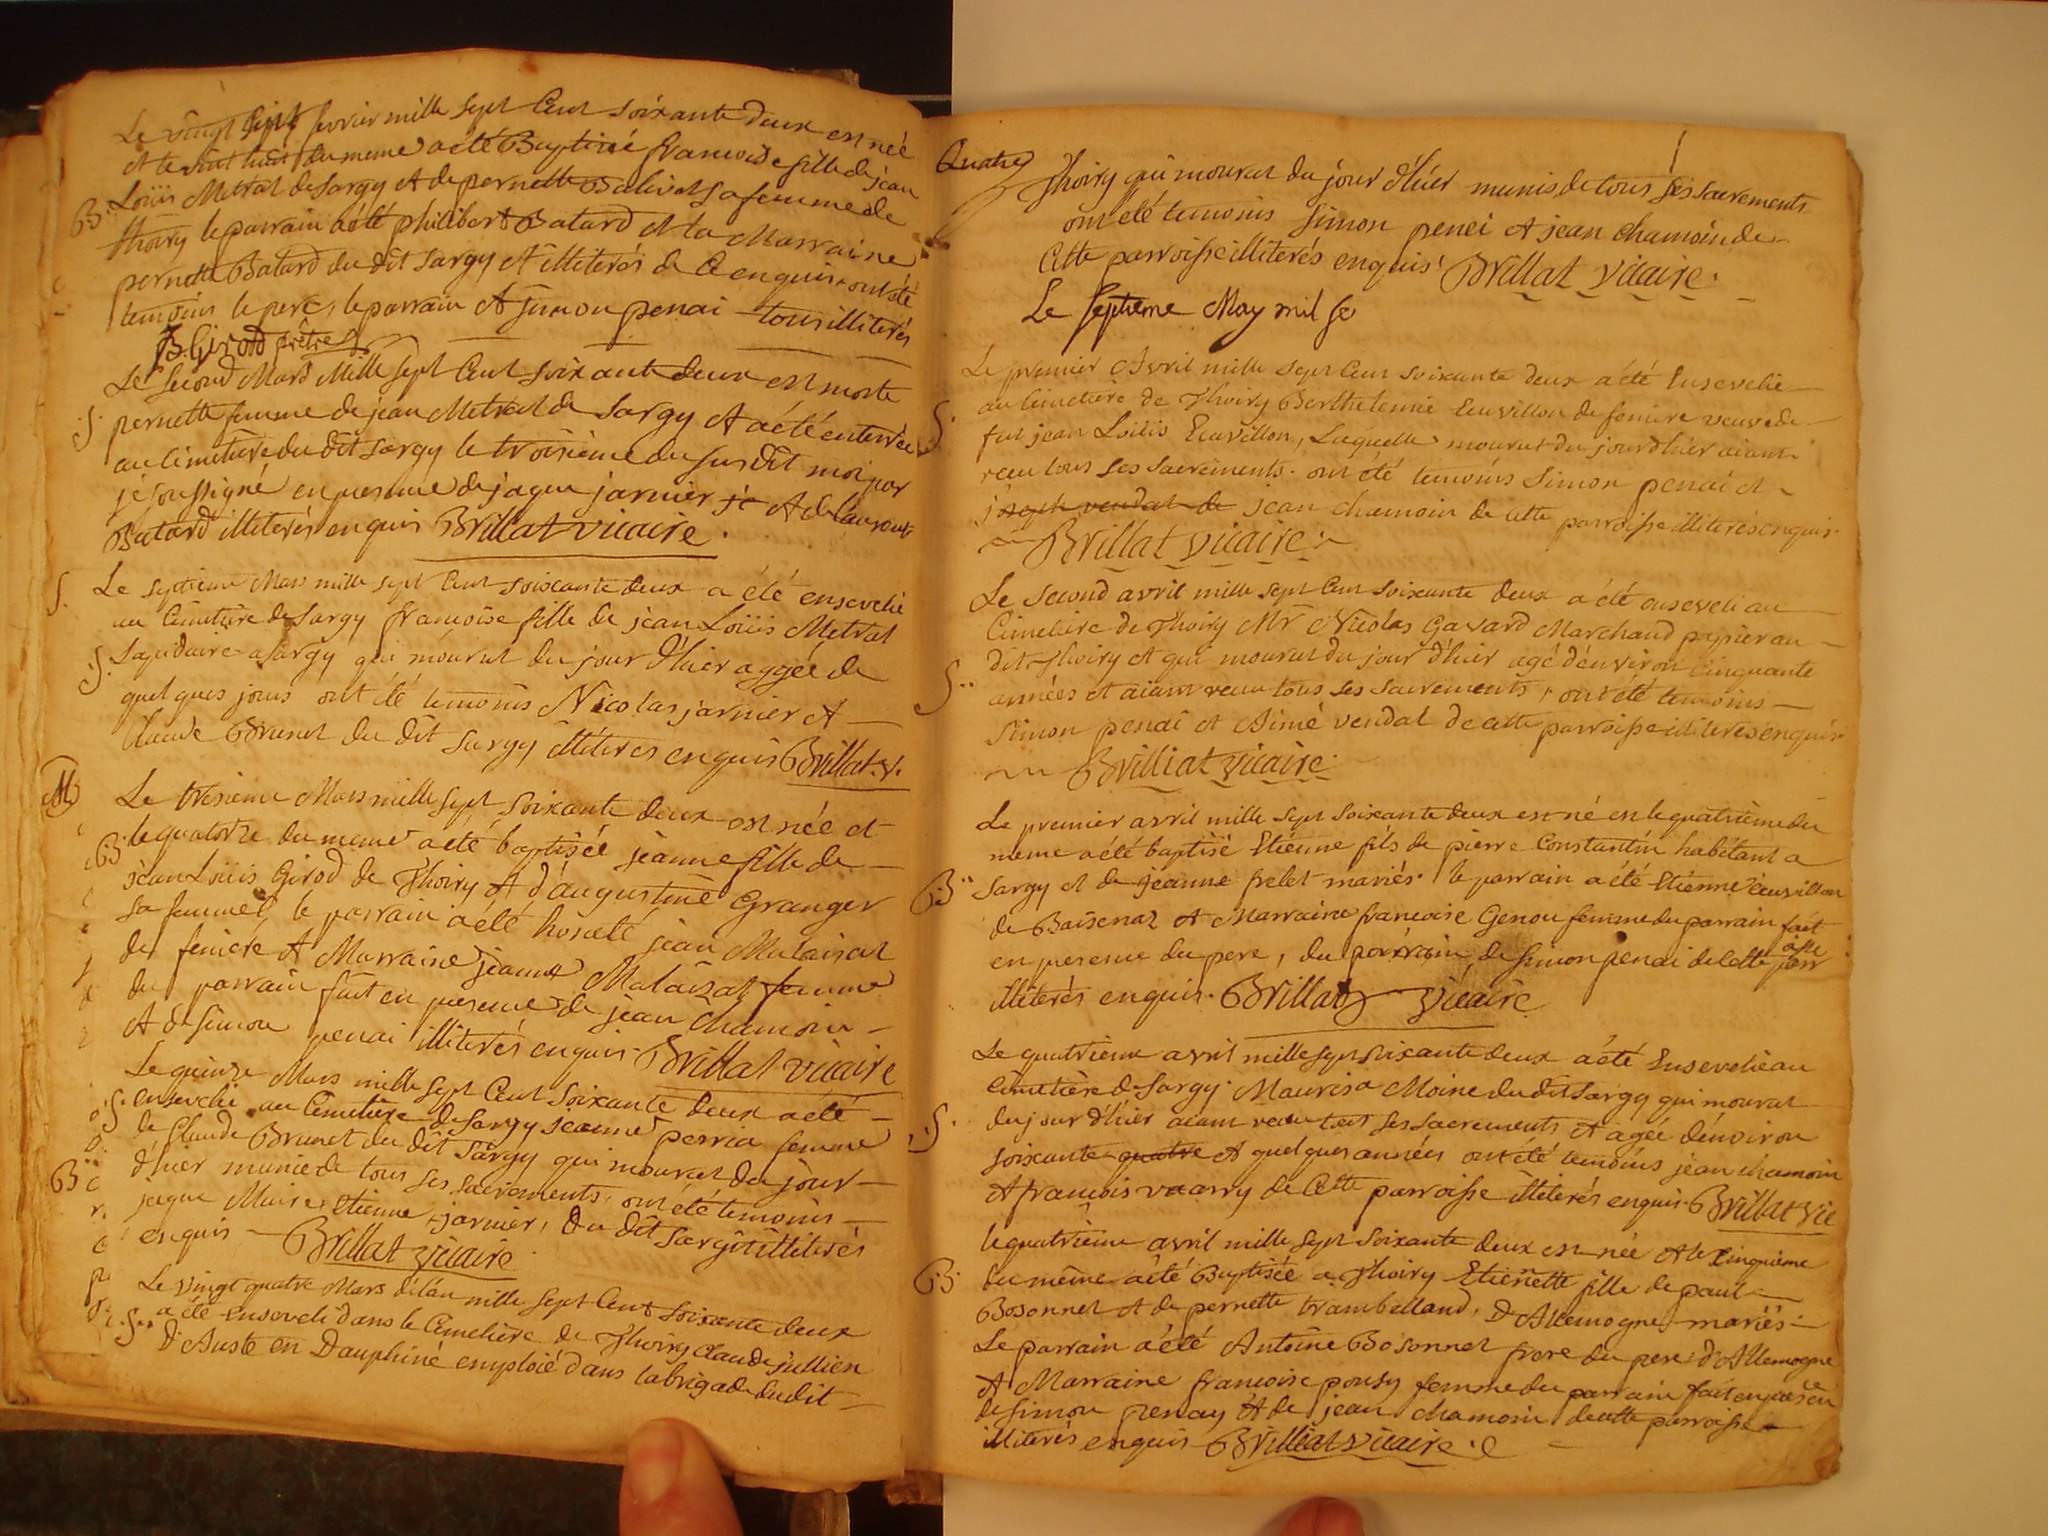 Le vingt sept fevrier mille sept Cent soixante deux est née
et le vint huit du meme a été Baptisé francoise fille de jean
B. Loüis Metral de Sargy et de pernette Balivat sa femme de
Thoiry le parrain a été philibert Batard et la Marraine
pernette Batard du dit Sargy et illiterés de Ce enquis ont été
temoins le pere, le parrain et Simon penai tous illiterés
B. Girod prêtre
Le Second Mars Mille sept Cent soixante deux est morte
S. pernette femme de jean Metral de Sargy et a été enterrée
au cimetiere du dit Sargy le troisieme du susdit moi par
je soussigné en presence de jaque jarnier et de laurent
Batard illiterés enquis Brillat vicaire.
S. Le septieme Mars mille sept Cent soixante deux a été ensevelie
au Cimetiere de Sargy francoise fille de jean Loüis Metral
S. Lapidaire a Sargy qui mourut du jour d'hier aggée de
quelques jours ont été temoins Nicolas jarnier et
Claude Brunet du dit Sargy illiteres enquis Brillat. v.
M
Le tresieme Mars mille sept soixante deux est née et
B. le quatorze du meme a été baptisée jeanne fille de
jean Loüis Girod de Thoiry et d'augustine Granger
sa femme, le parrain a été honeté jean Malaisat
de feniere et Marraine jeanne Malaisat femme
du parrain fait en presence de jean Chamoin
et de Simon penai illiterés enquis. Brillat vicaire
Le quinze Mars mille sept Cent soixante deux a été
S. ensevelie au Cimetiere de Sargy jeanne perria femme
de Claude Brunet du dit Sargy qui mourut du jour
d'hier munie de tous ses sacrements, ont été temoins
B jaque Maire, Etienne jarnier, du dit Sargy illiterés
enquis Brillat vicaire
Le vingt quatre Mars de l'an mille sept Cent soixante deux
S. a été enseveli dans le Cimetière de Thoiry Claude jullien
d'Auste en Dauphiné emploié dans la brigade dudit
Quatre
Thoiry qui mourut du jour d'hier munis de tous ses sacrements
ont été temoins Simon penei et jean chamoin de
Cette parroisse illiterés enquis Brillat vicaire.
Le septieme May mil se
Le premier Avril mille sept Cent soixante deux a été Ensevelie
au Cimetiere de Thoiry Berthelemie Ecuvillon de feniere veuve de
S. fut jean Loüis Ecuvillon, Laquelle mourut du jour d'hier aiant
recu tous ses sacrements. ont été temoins Simon penai et
joseph vendat de jean chamoin de cette parroisse illiterés enquis.
Brillat vicaire.
Le Second avril mille sept Cent soixante deux a été enseveli au
Cimetiere de Thoiry Mr Nicolas Gavard Marchand papier au
dit Thoiry et qui mourut du jour d'hier agé d'environ Cinquante
S. années et aiant recu tous ses sacrements, ont été temoins
Simon penai et Aimé vendat de cette parroisse illiteres enquis.
Brilliat vicaire.
Le premier avril mille sept soixante deux est né et le quatrième du
meme a été baptisé Etienne fils de pierre Constantin habitant a
B. Sargy et de jeanne frelet mariés. le parrain a été Etienne écuvillon
de Baisenas et Marraine francoise Genou femme du parrain fait
en presence du pere, du parrain, de Simon penai de cette parroisse
illiterés enquis. Brillat vicaire
Le quatrieme avril mille sept soixante deux a été Ensevelie au
Cimetière de Sargy. Maurisa Moine du dit Sargy qui mourut
S. du jour d'hier aiant recu tous ses sacrements et agée d'environ
soixante quatre et quelques années ont été temoins jean chamoin
et francois vuarry de Cette parroisse illiterés enquis. Brillat vic
le quatrieme avril mille sept soixante deux est née et le Cinquieme
B. du même a été Baptisée a Thoiry Etienette fille de paul
Bosonnet et de pernette trambelland, d'Allemogne mariés.
Le parrain a été Antoine Bosonnet frere du pere d'Allemogne
et Marraine francoise pousy femme du parrain fait en presence
de Simon penay et de jean Chamoin de cette parroisse
illiterés enquis Brilliat vicaire.